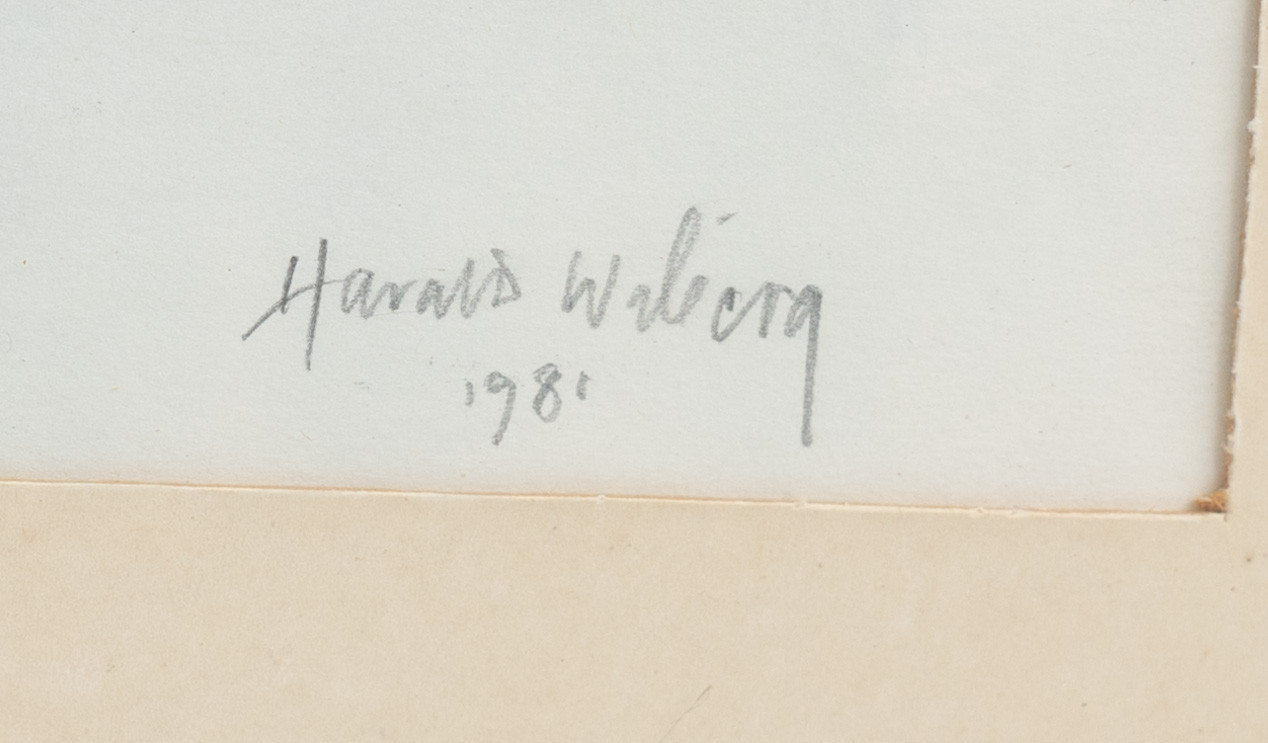 Harald Wiberg
1981